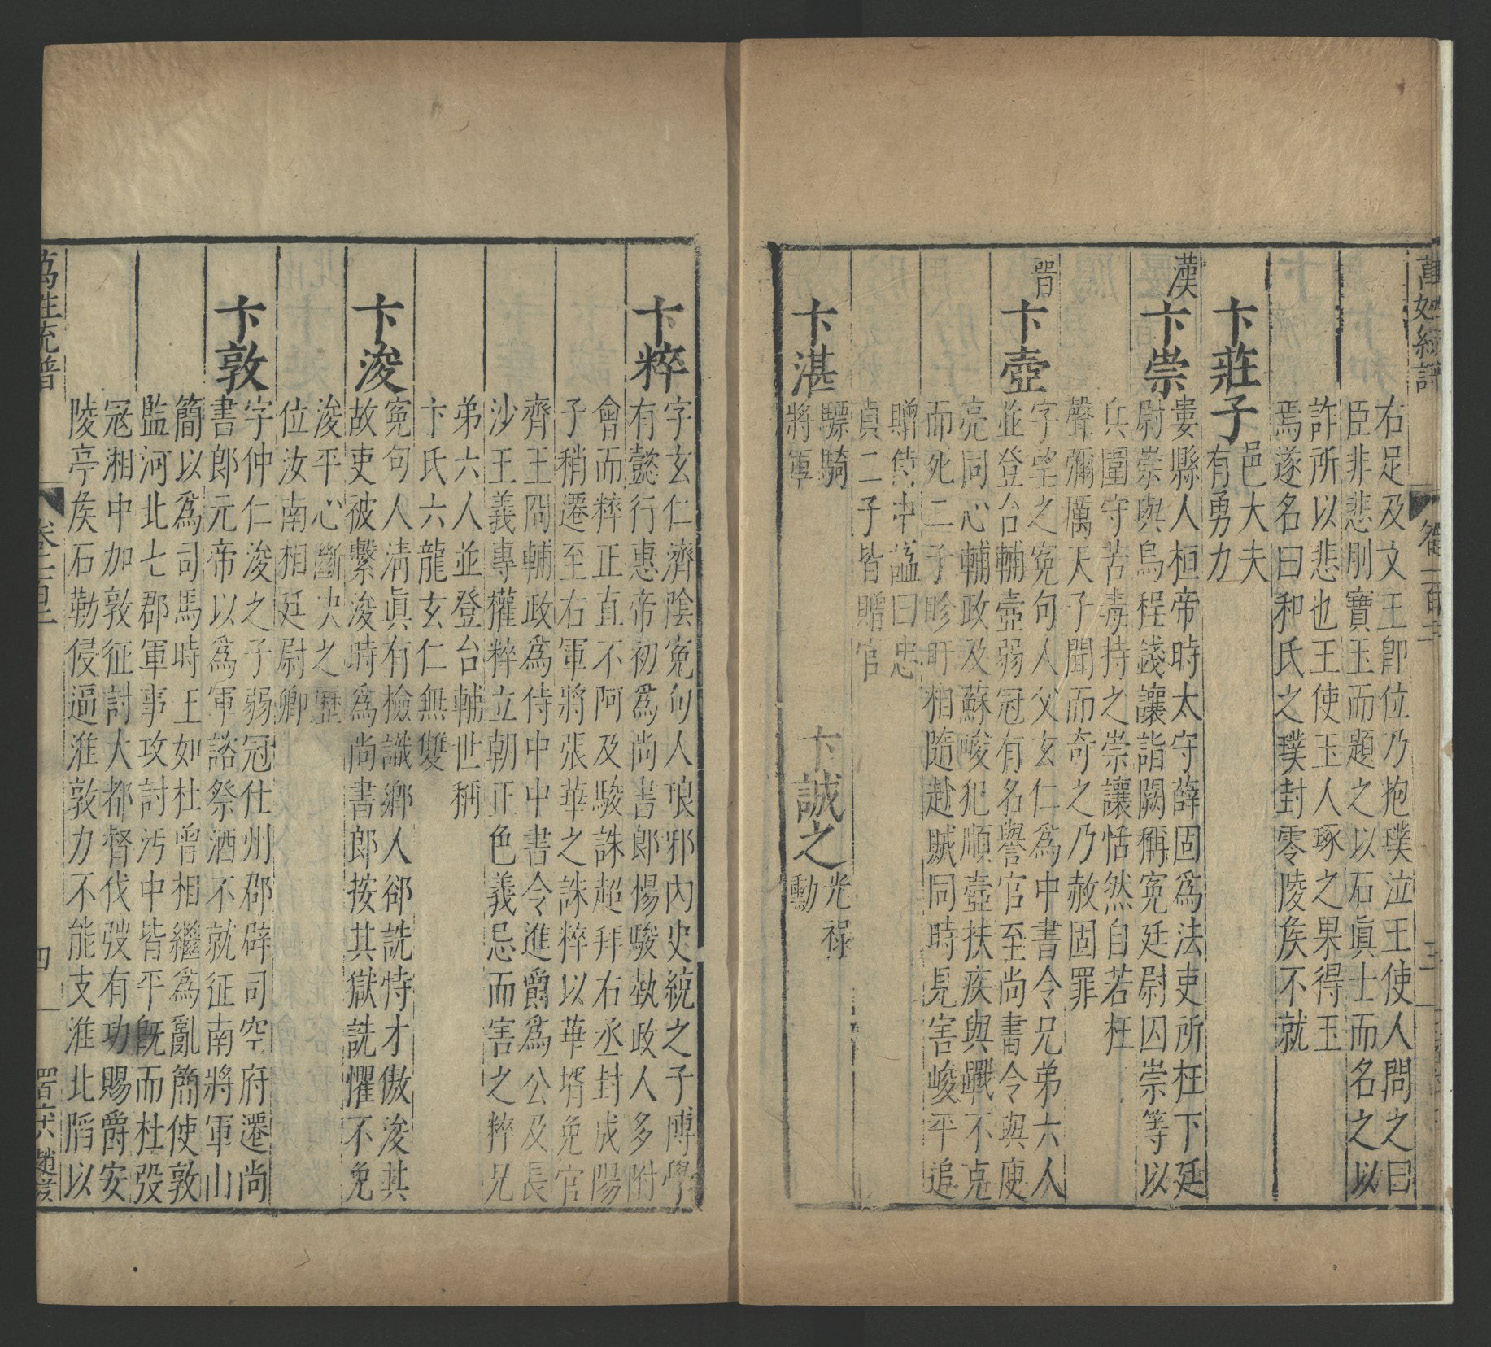 右足及文王卽位乃抱璞泣王使人問之曰
臣非悲刖寶玉而題之以石眞士而名之以
詐所以悲也王使玉人琢之果得玉
焉遂名曰和氏之璞封零陵矦不就
卞莊子
邑大夫
有勇力
漢
卞崇
婁縣人桓帝時太守薛固爲法吏所枉下廷
尉崇與烏程錢讓詣闕稱寃廷尉囚崇等以
兵圍守苦毒持之崇讓恬然自若枉
聲彌厲天子聞而奇之乃赦固罪
晉
卞壺
字望之寃句人父玄仁爲中書令兄弟六人
並登台輔壺弱冠有名譽官至尚書令與庾
亮同心輔政及蘇峻犯順壺扶疾與戰不克
而死二子眕盱相隨赴賊同時見害峻平追
贈侍中謚曰忠
貞二子皆贈官
卞湛
驃騎
將軍
卞誠之
光祿
勳
卞粹
字玄仁濟陰寃句人琅邪內史統之子博學
有懿行惠帝初爲尚書郎楊駿執政人多附
會而粹正直不阿及駿誅超拜右丞封成陽
子稍遷至右軍將張華之誅粹以華壻免官
齊王冏輔政爲侍中中書令進爵爲公及長
沙王義專權粹立朝正色義忌而害之粹兄
弟六人並登台輔世稱
卞氏六龍玄仁無雙
卞浚
寃句人淸眞有檢識鄉人郤詵恃才傲浚其
故吏被繫浚時爲尚書郎按其獄詵懼不免
浚平心斷决之歷
位汝南相廷尉卿
卞敦
字仲仁浚之子弱冠仕州郡辟司空府遷尚
書郎元帝以爲軍諮祭酒不就征南將軍山
簡以爲司馬時王如杜曾相繼爲亂簡使敦
監河北七郡軍事攻討沔中皆平旣而杜弢
冦湘中加敦征討大都督伐弢有功賜爵安
陵亭矦石勒侵逼淮敦力不能支淮北陷以
萬姓統譜
卷一百十
四